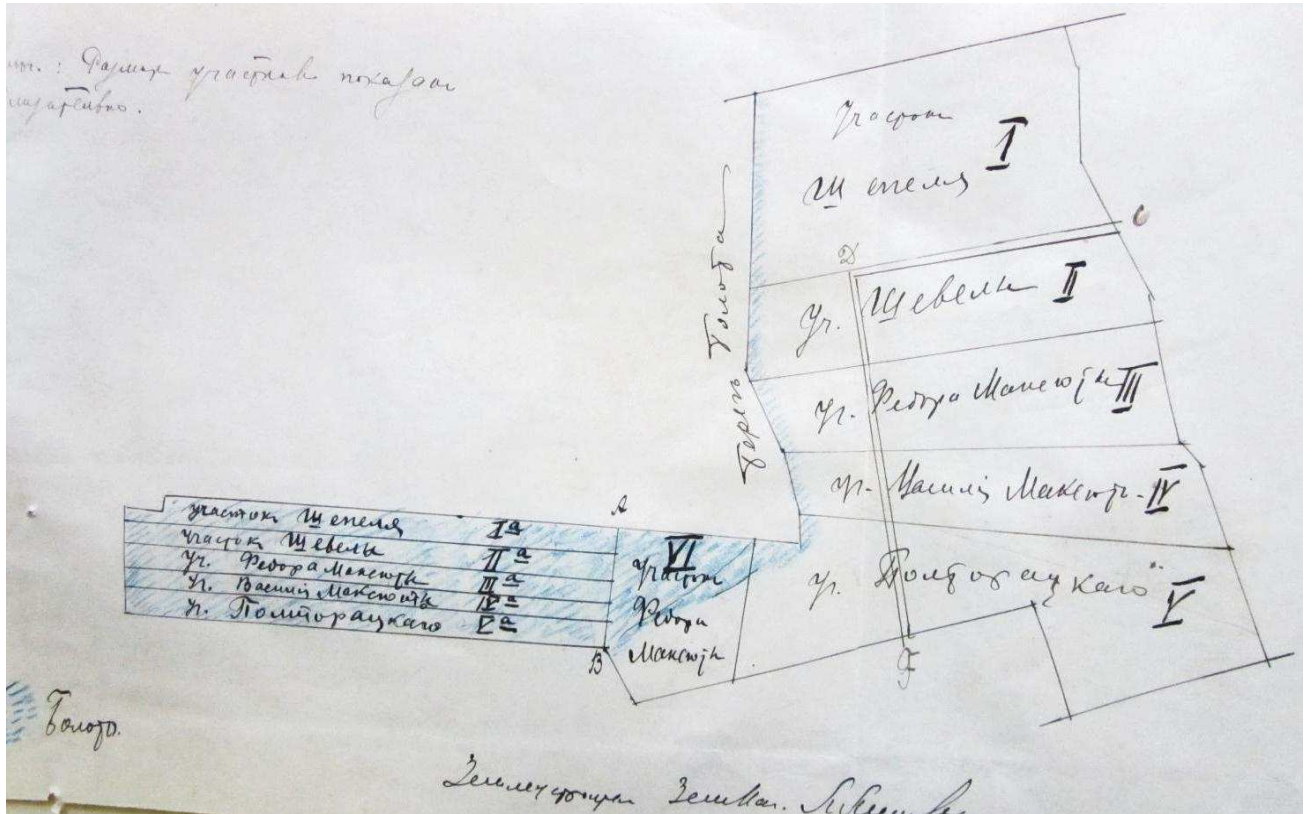 участковъ показан
Участок
I
Шепеля
C
Д
Уч. Шевелы II
Уч. Федора Максюты III
Уч. Василия Максюты IV
Уч. Полторацкаго V
F
Берегъ Болота
участок Шепеля Iа
участок Шевелы IIа
Уч. Федора Максюты IIIа
Уч. Василия Максюты IVа
Уч. Полторацкаго Vа
А
В
VI
Участок
Федора
Максюты
Болото.